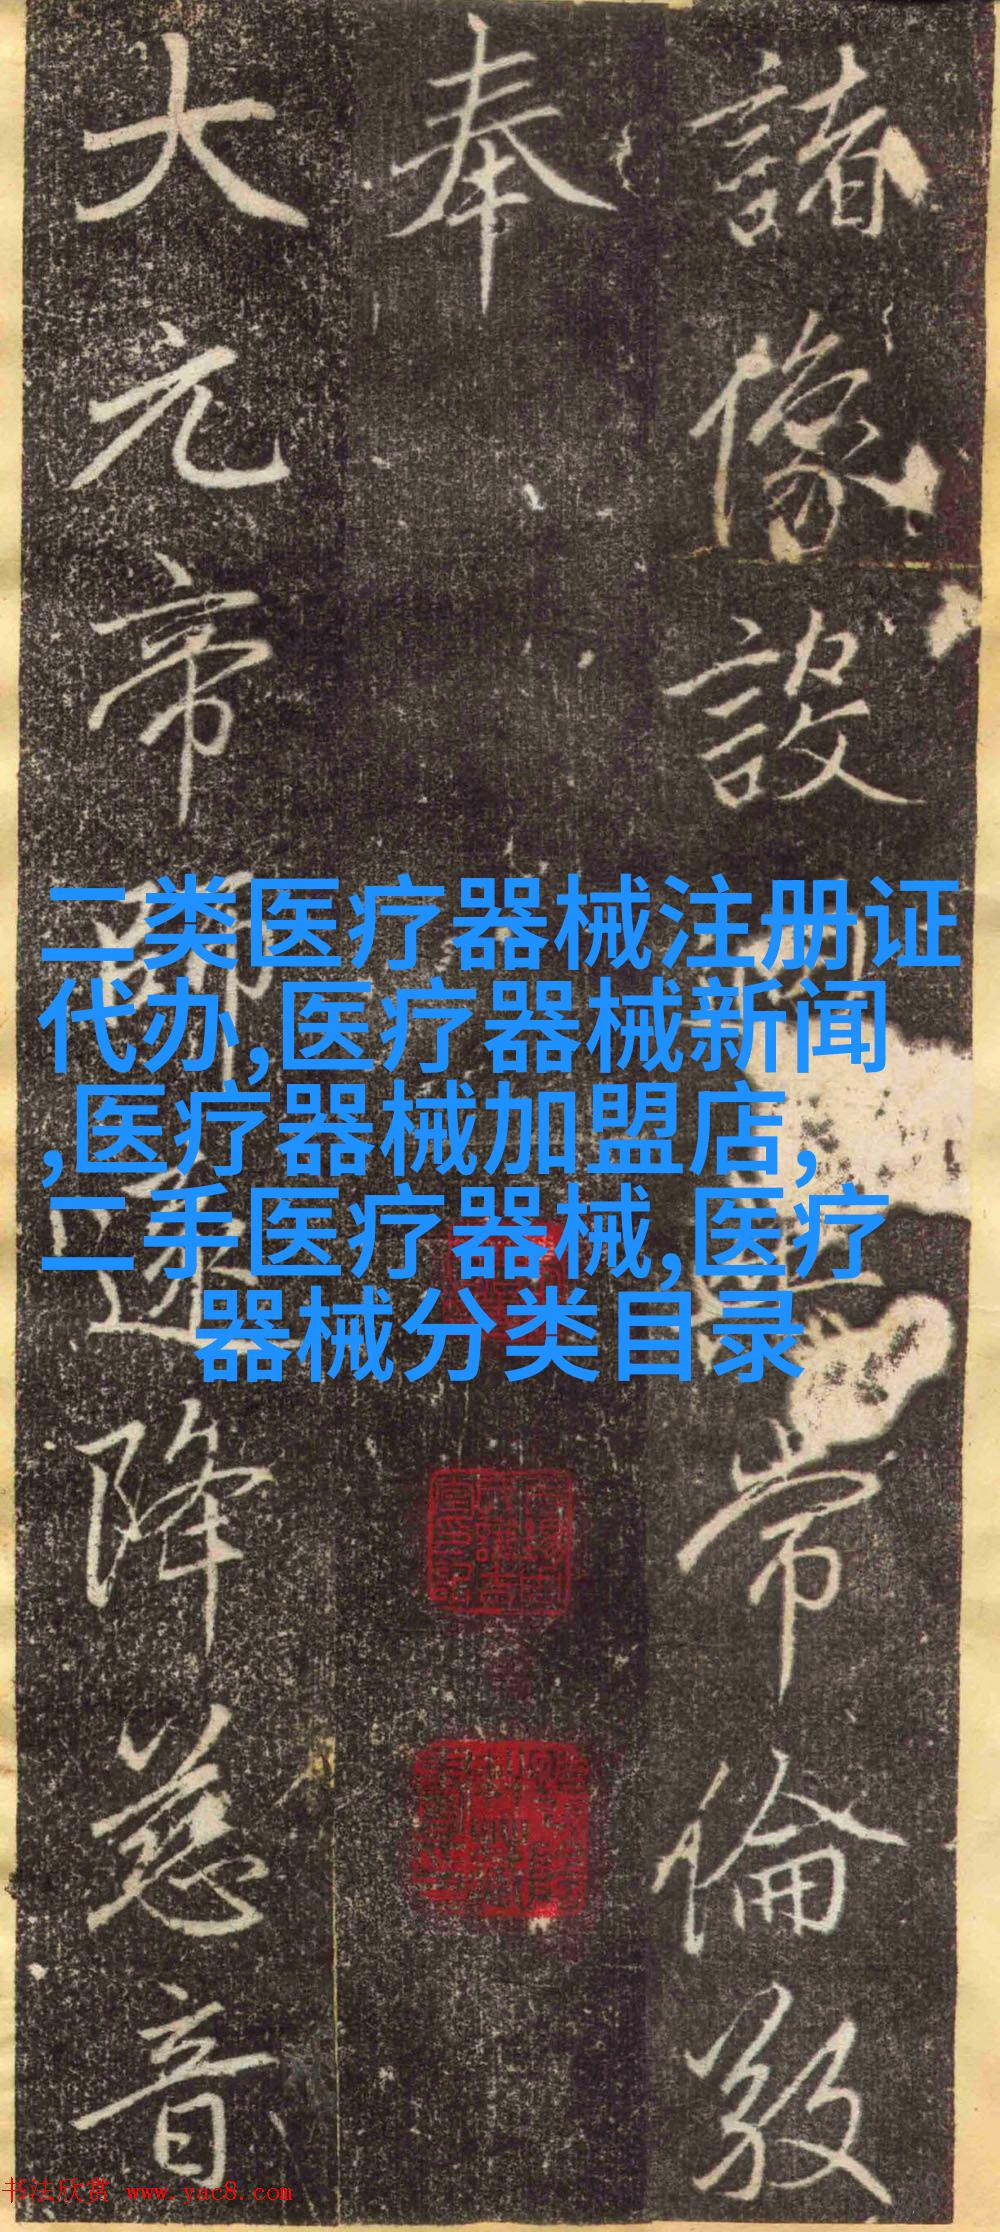 諸像設常倫
奉
大元帝師降慈音
二类医疗器械注册证
代办,医疗器械新闻
,医疗器械加盟店,
二手医疗器械,医疗
器械分类目录
书法欣赏 www.yac8.com